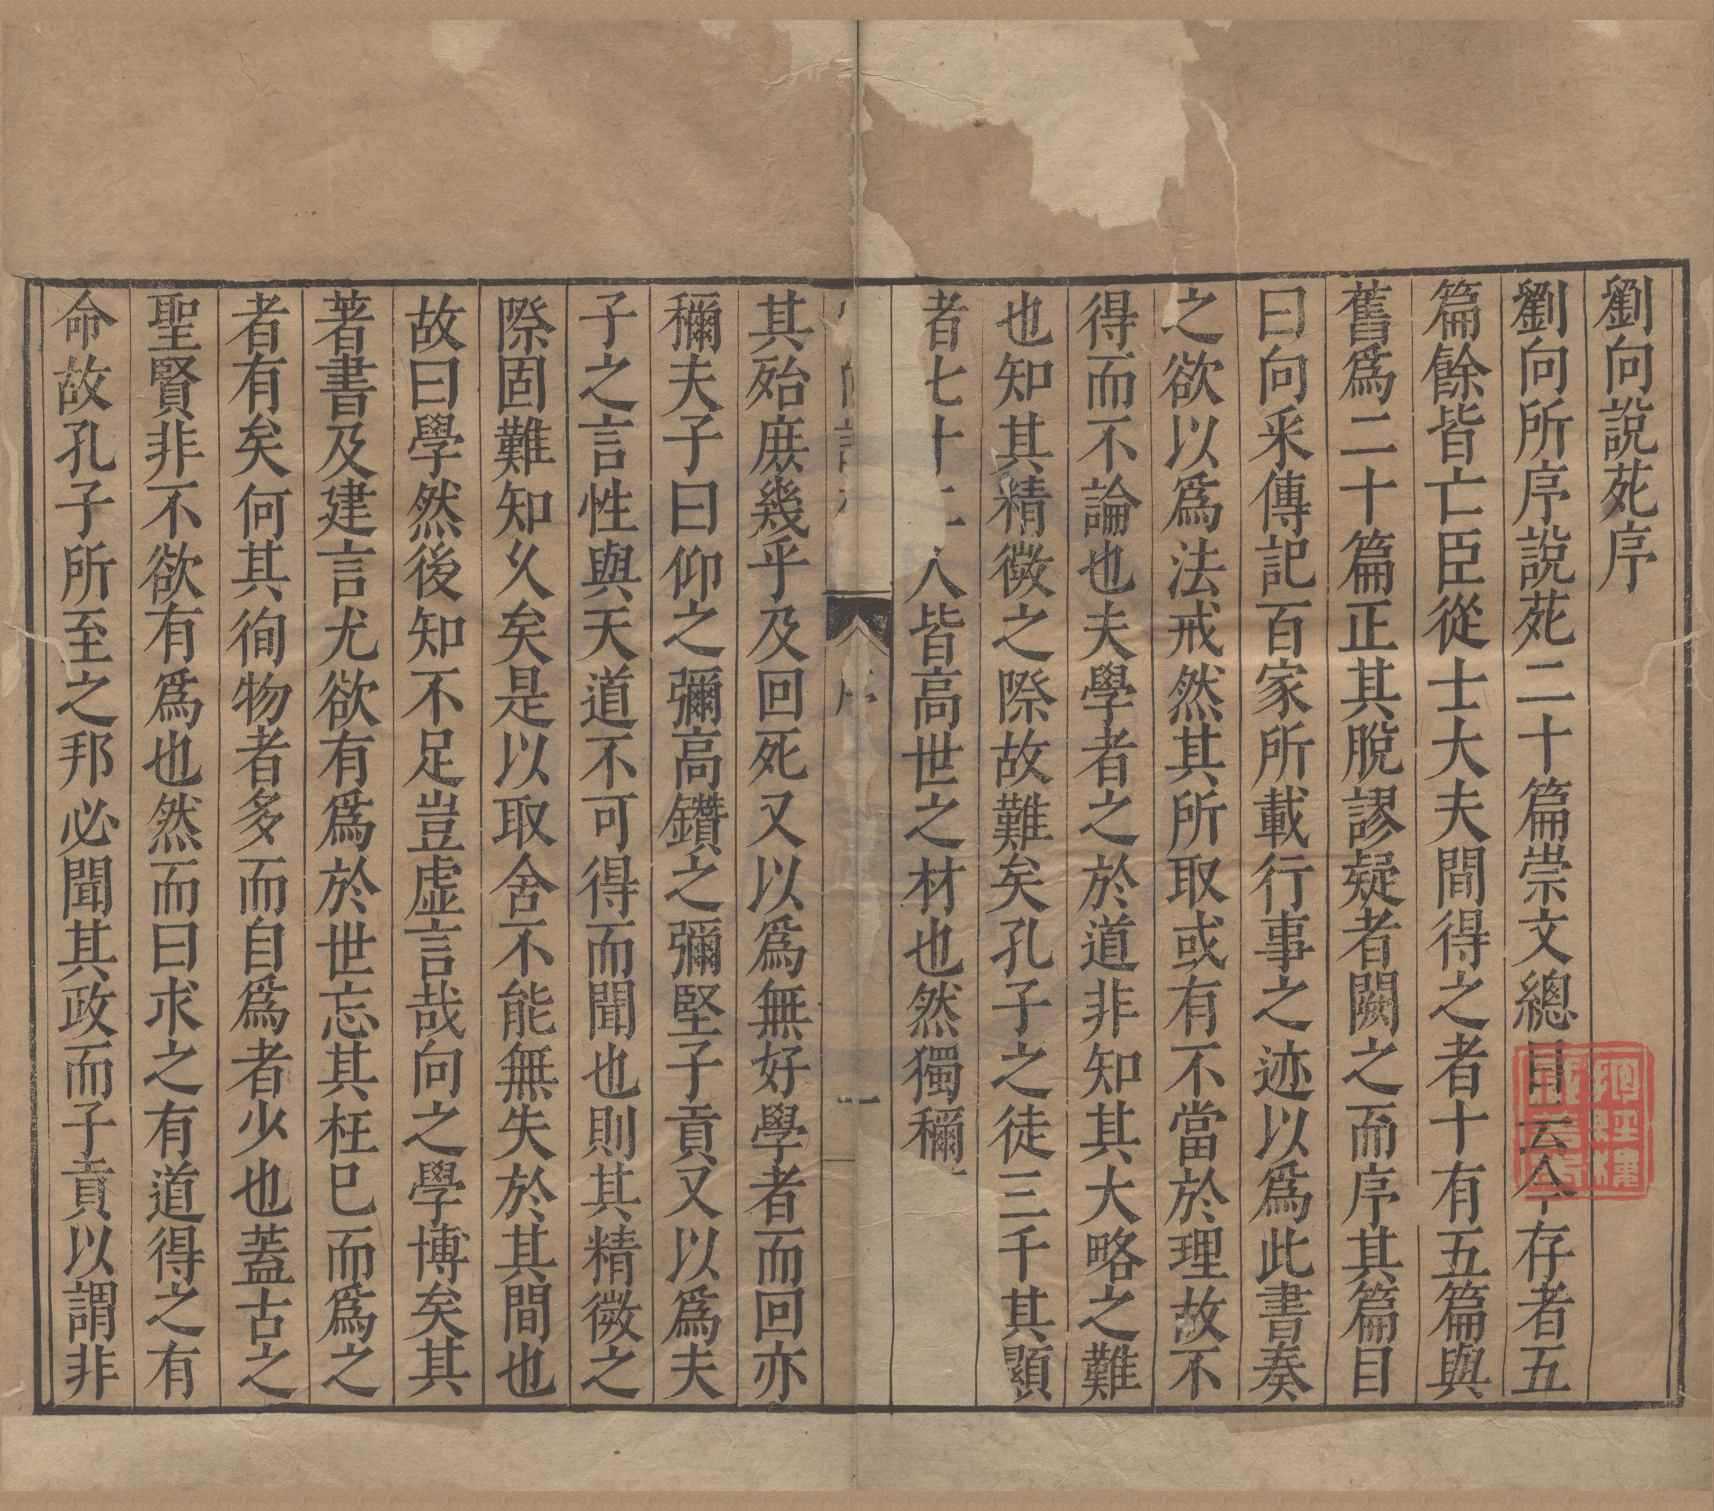 劉向說苑序
劉向所序說苑二十篇崇文總目云今存者五
篇餘皆亡臣從士大夫間得之者十有五篇與
舊爲二十篇正其脫謬疑者闕之而序其篇目
曰向采傳記百家所載行事之迹以爲此書奏
之欲以爲法戒然其所取或有不當於理故不
得而不論也夫學者之於道非知其大略之難
也知其精微之際故難矣孔子之徒三千其顯
者七十二人皆高世之材也然獨稱
序 一
其殆庶幾乎及回死又以爲無好學者而回亦
稱夫子曰仰之彌高鑽之彌堅子貢又以爲夫
子之言性與天道不可得而聞也則其精微之
際固難知久矣是以取舍不能無失於其間也
故曰學然後知不足豈虛言哉向之學博矣其
著書及建言尤欲有爲於世忘其枉己而爲之
者有矣何其徇物者多而自爲者少也蓋古之
聖賢非不欲有爲也然而曰求之有道得之有
命故孔子所至之邦必聞其政而子貢以謂非